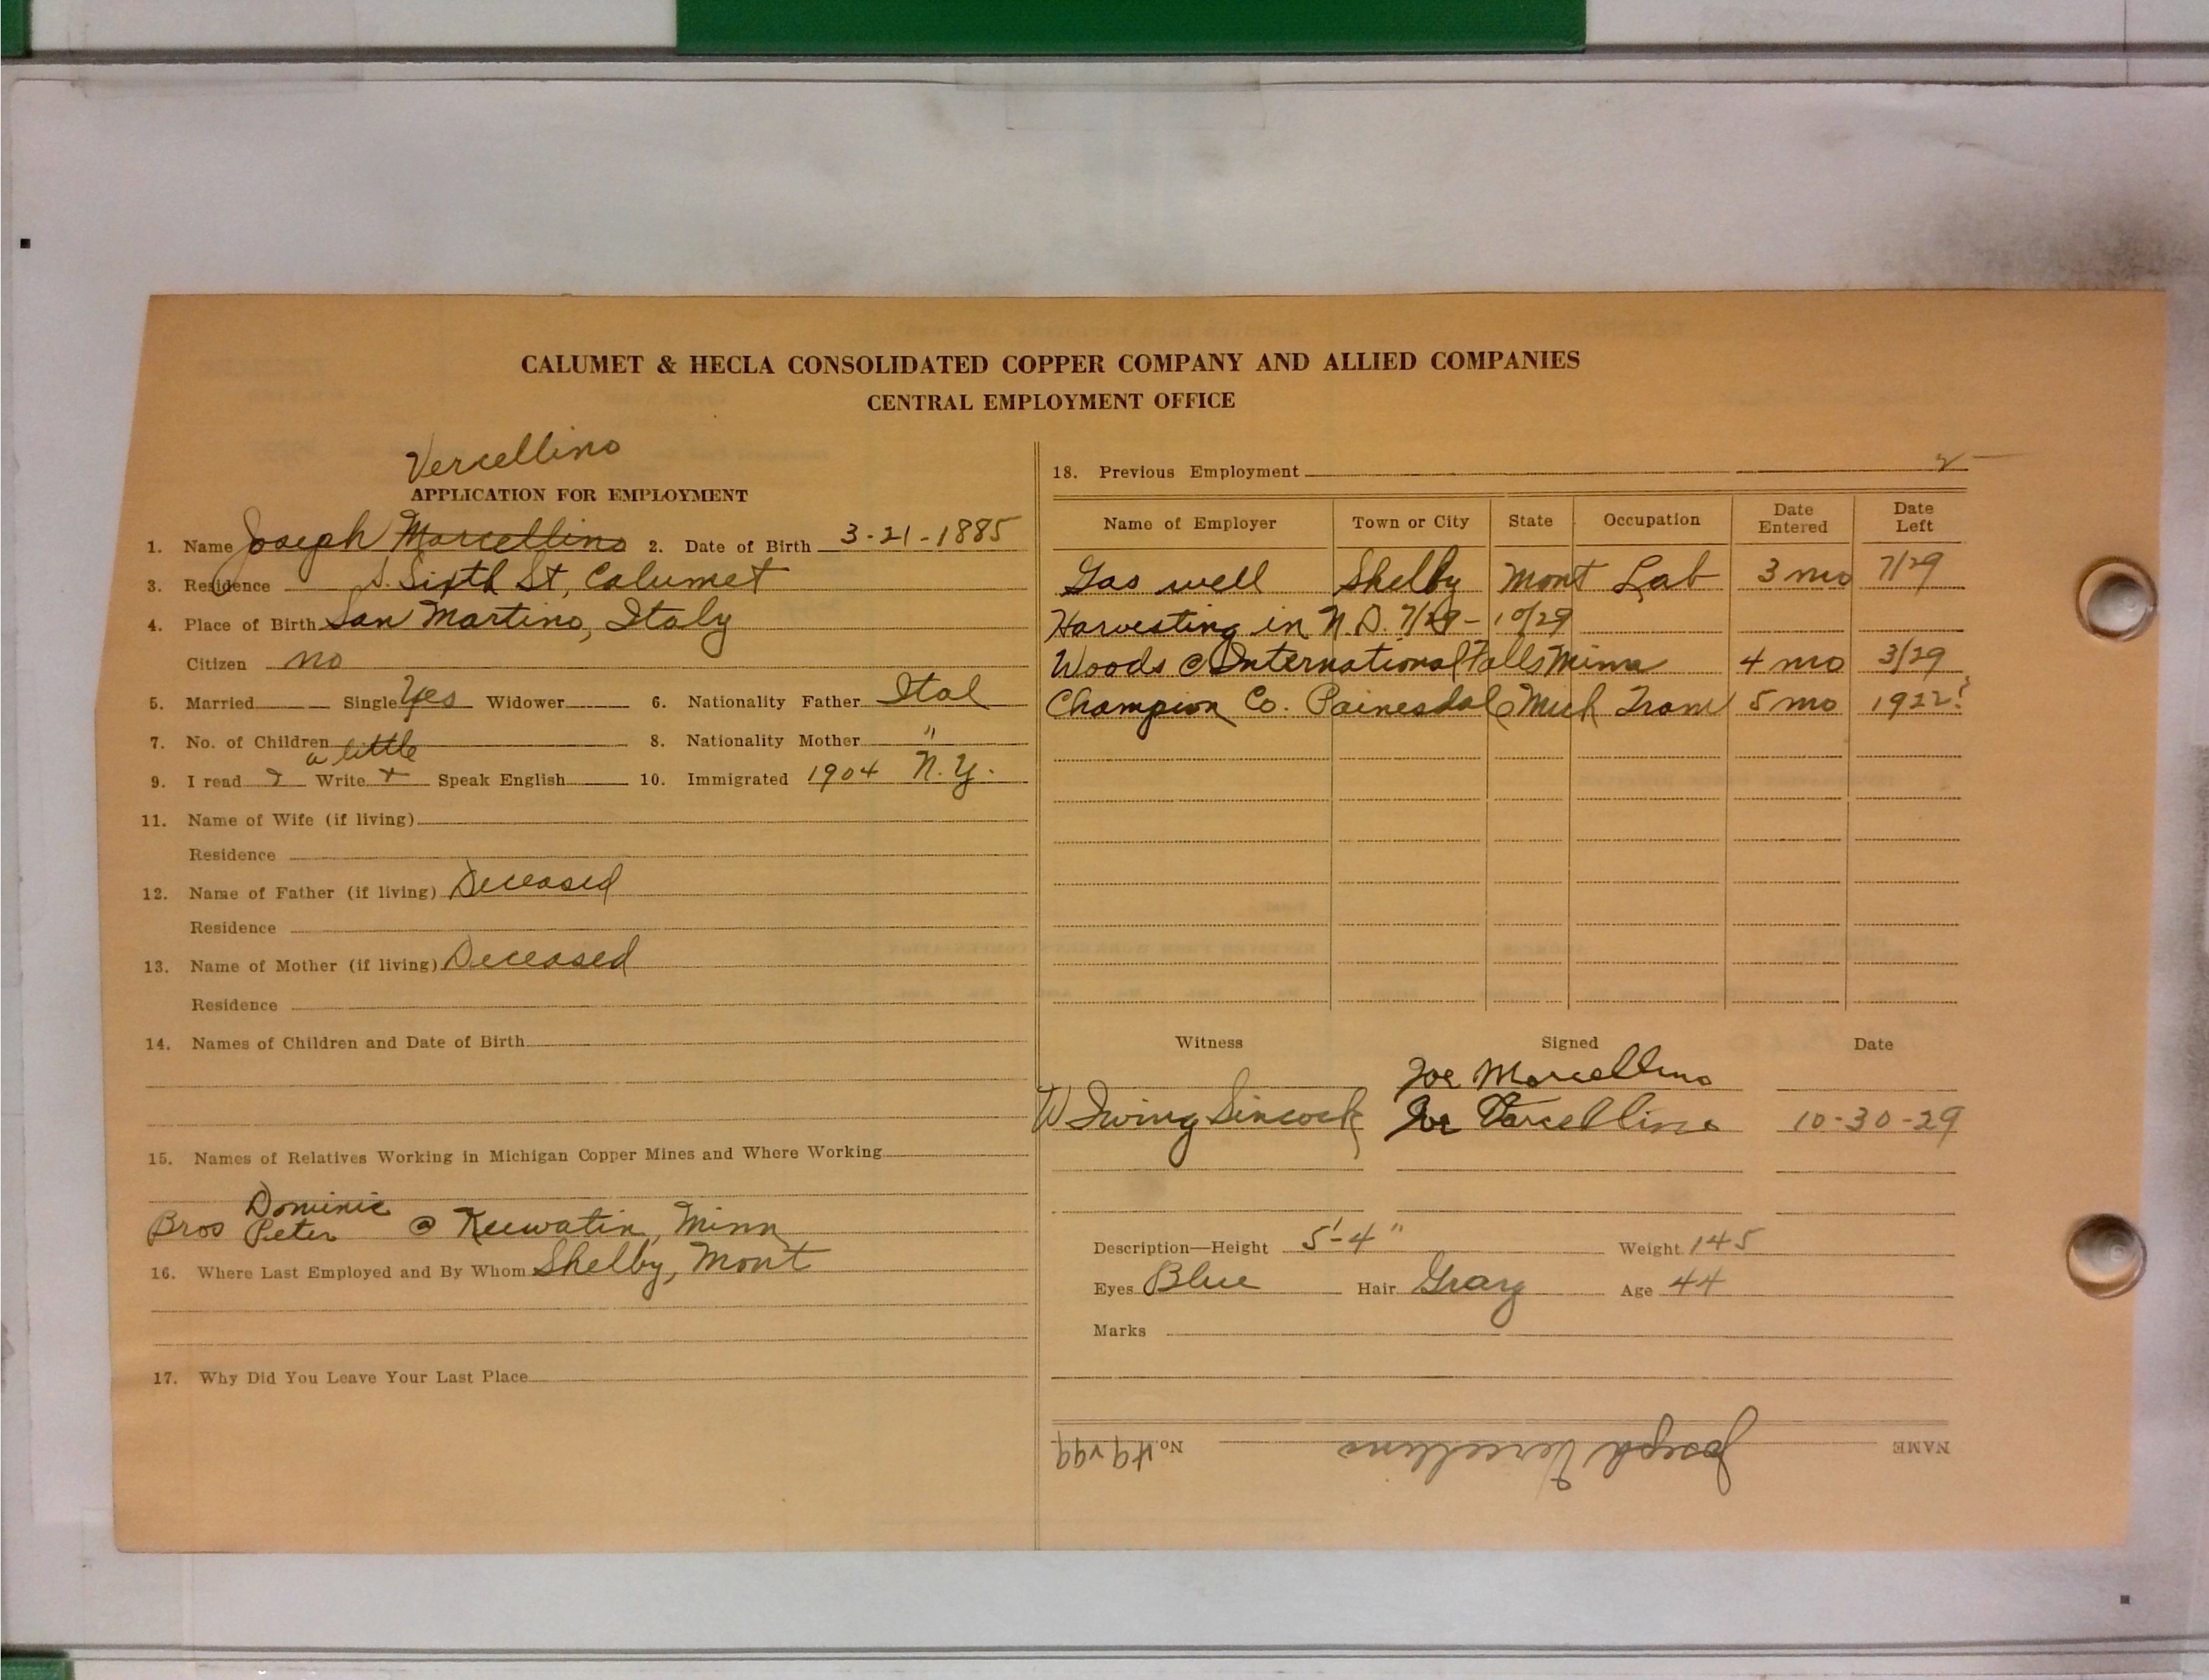 CALUMET & HECLA CONSOLIDATED COPPER COMPANY AND ALLIED COMPANIES
CENTRAL EMPLOYMENT OFFICE
Vercellino
APPLICATION FOR EMPLOYMENT
1. Name Joseph Marcellino 2. Date of Birth 3-21-1885
3. Residence S. Sixth St, Calumet
4. Place of Birth San Martino, Italy
Citizen no
5. Married Single Yes Widower 6. Nationality Father Ital
7. No. of Children 8. Nationality Mother "
a little
9. I read Write Speak English 10. Immigrated 1904 N.Y.
11. Name of Wife (if living)
Residence
12. Name of Father (if living) Deceased
Residence
13. Name of Mother (if living) Deceased
Residence
14. Names of Children and Date of Birth
15. Names of Relatives Working in Michigan Copper Mines and Where Working
Dominic
Bros Peter @ Keewatin, Minn
16. Where Last Employed and By Whom Shelby, Mont
17. Why Did You Leave Your Last Place
18. Previous Employment
Name of Employer Town or City State Occupation Date Entered Date Left
Gas well Shelby Mont Lab 3 mo 7/29
Harvesting in N.D. 7/29 - 10/29
Woods @ International Falls Minn 4 mo 3/29
Champion Co. Painesdale Mich Tram 5 mo 1922?
Witness Signed Date
Joe Marcellino
W Irving Sincock Joe Varcellino 10-30-29
Description—Height 5'-4" Weight 145
Eyes Blue Hair Gray Age 44
Marks
NAME Joseph Vercellino No.